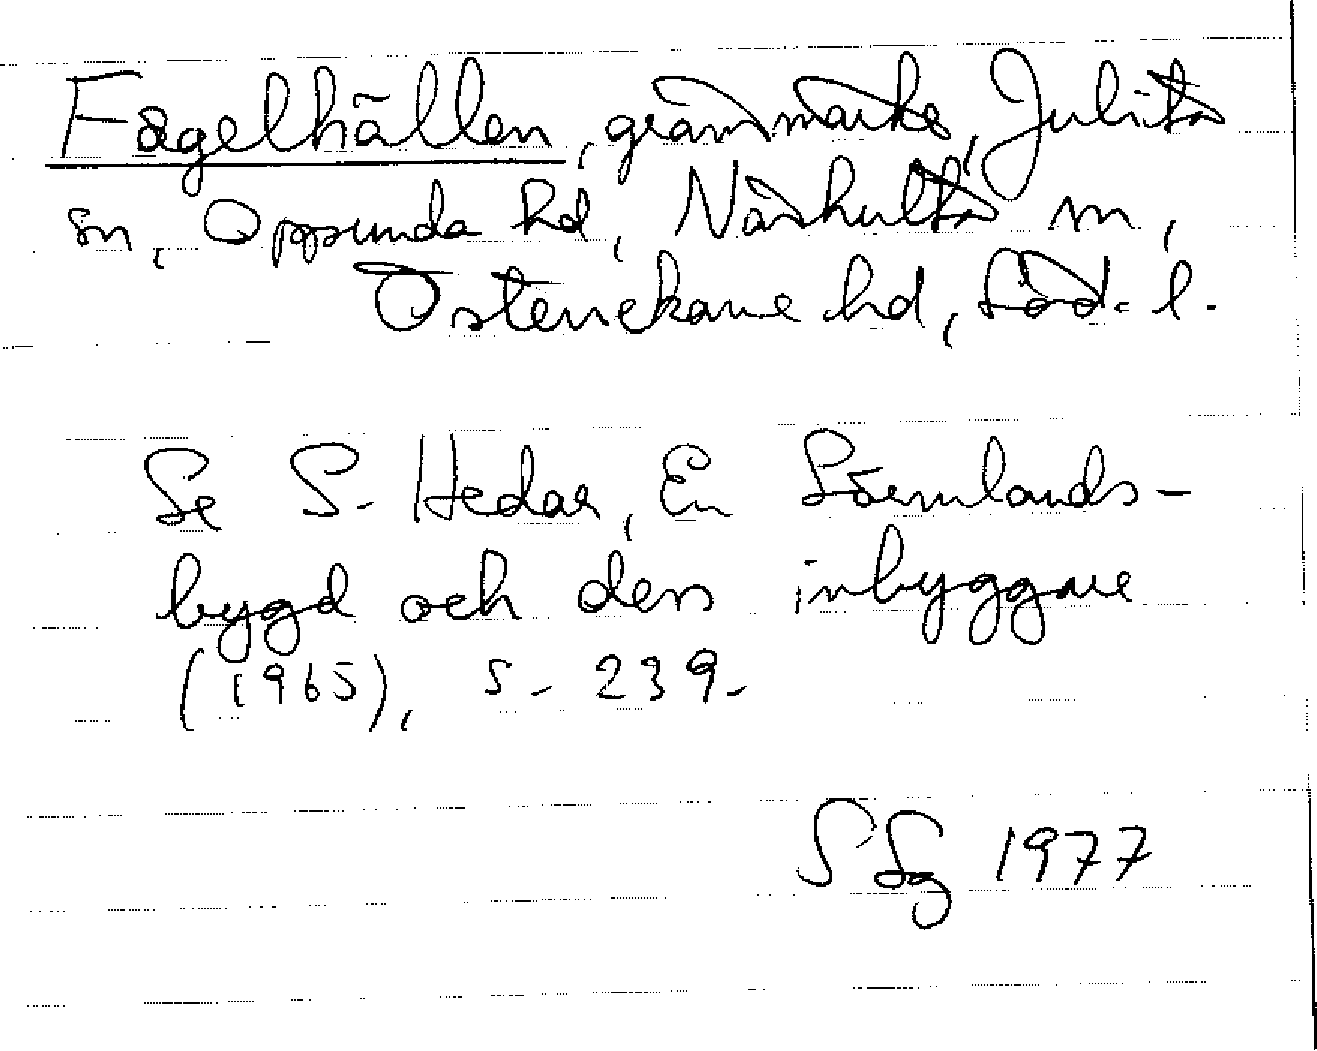 Fågelhällen, gränsmärke, Julita
sn, Oppunda hd, Närshults m,
Österrekarne hd, Söd. l.
Se S. Hedar, En Sörmlands-
bygd och dess inbyggare
(1965), s. 239.
SSg 1977